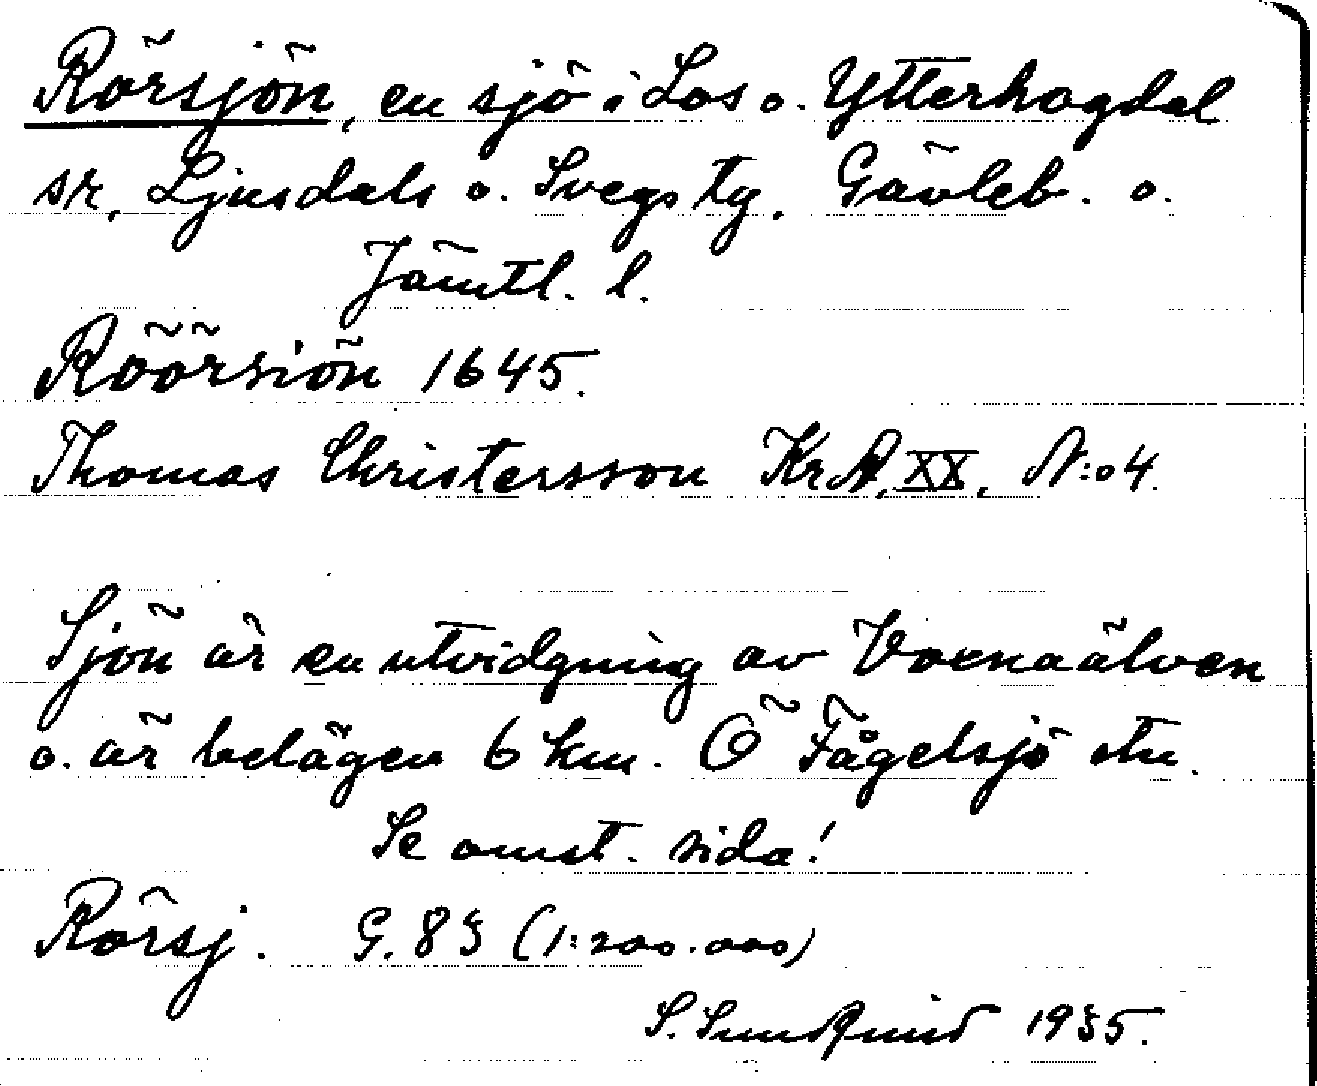 Rörsjön, en sjö i Los o. Ytterhogdal
sr, Ljusdals o. Svegs tg. Gävleb. o.
Jämtl. l.
Röörsiön 1645.
Thomas Christersson KrA, XX, N:o 4.
Sjön är en utvidgning av Voxnaälven
o. är belägen 6 km. Ö Fågelsjö stn.
Se omst. sida!
Rörsj. G. 83 (1:200.000)
S. Sundqvist 1935.